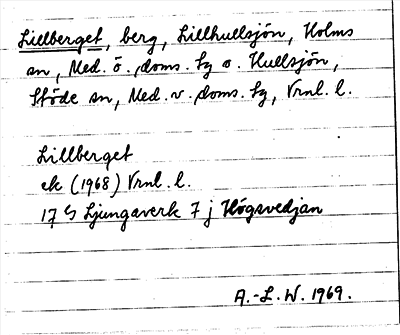 Lillberget, berg, Lillhullsjön, Holms
sn, Med. ö. doms. tg o. Hullsjön,
Stöde sn, Med. v. doms. tg, Vrnl. l.
Lillberget
ek (1968) Vrnl. l.
17 G Ljungaverk 7 j Högsvedjan
A.-L. W. 1969.